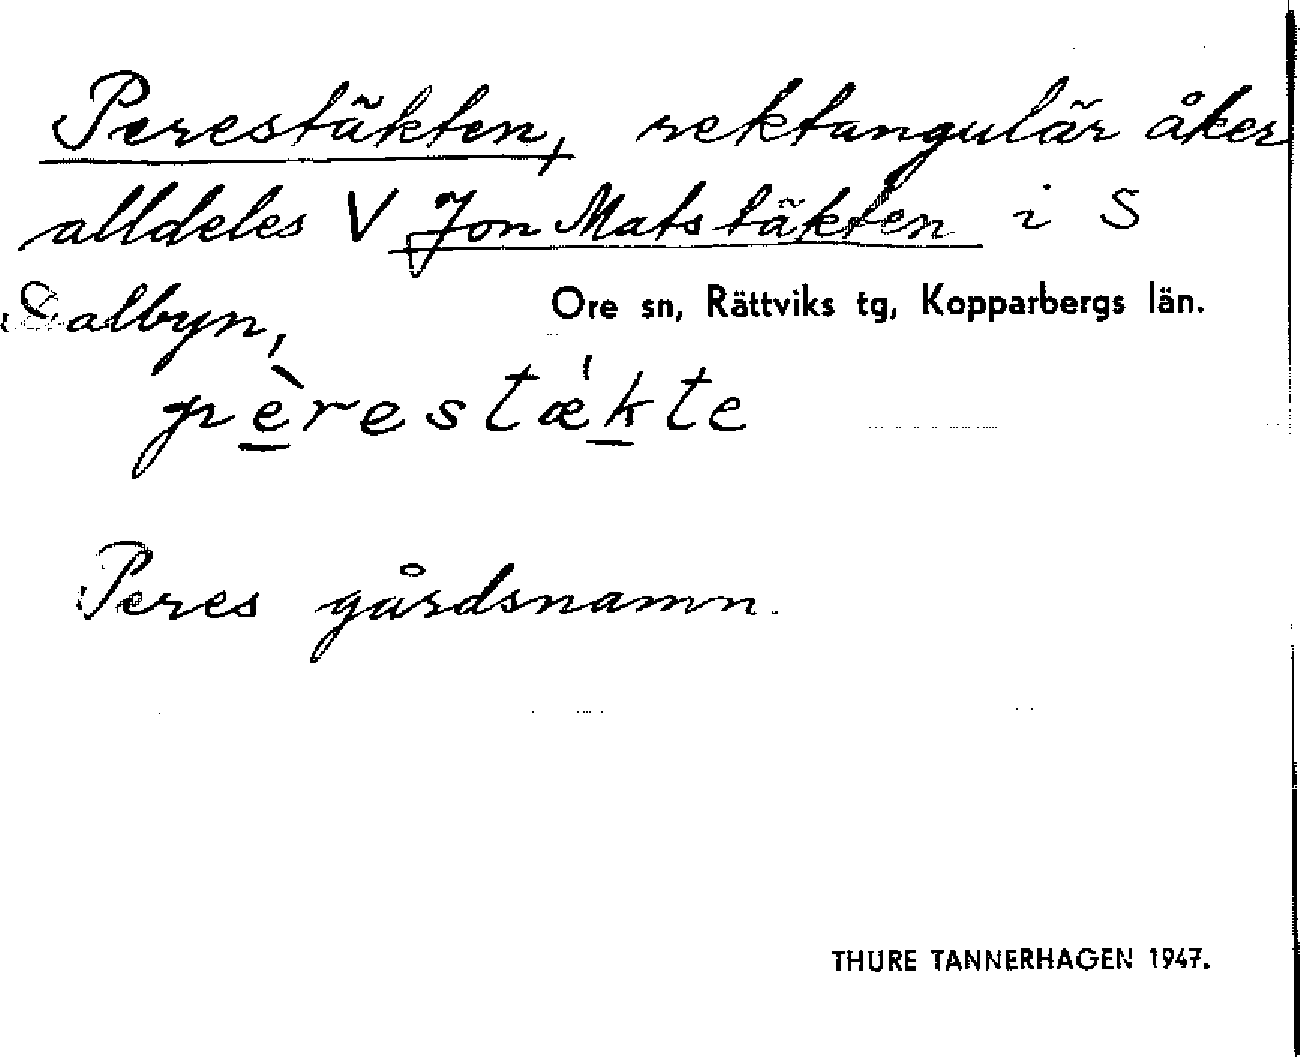 Perestäkten, rektangulär åker
alldeles V Jon Matstäkten i S
Dalbyn,
Ore sn, Rättviks tg, Kopparbergs län.
pèrestǽkte
Peres gårdsnamn.
THURE TANNERHAGEN 1947.